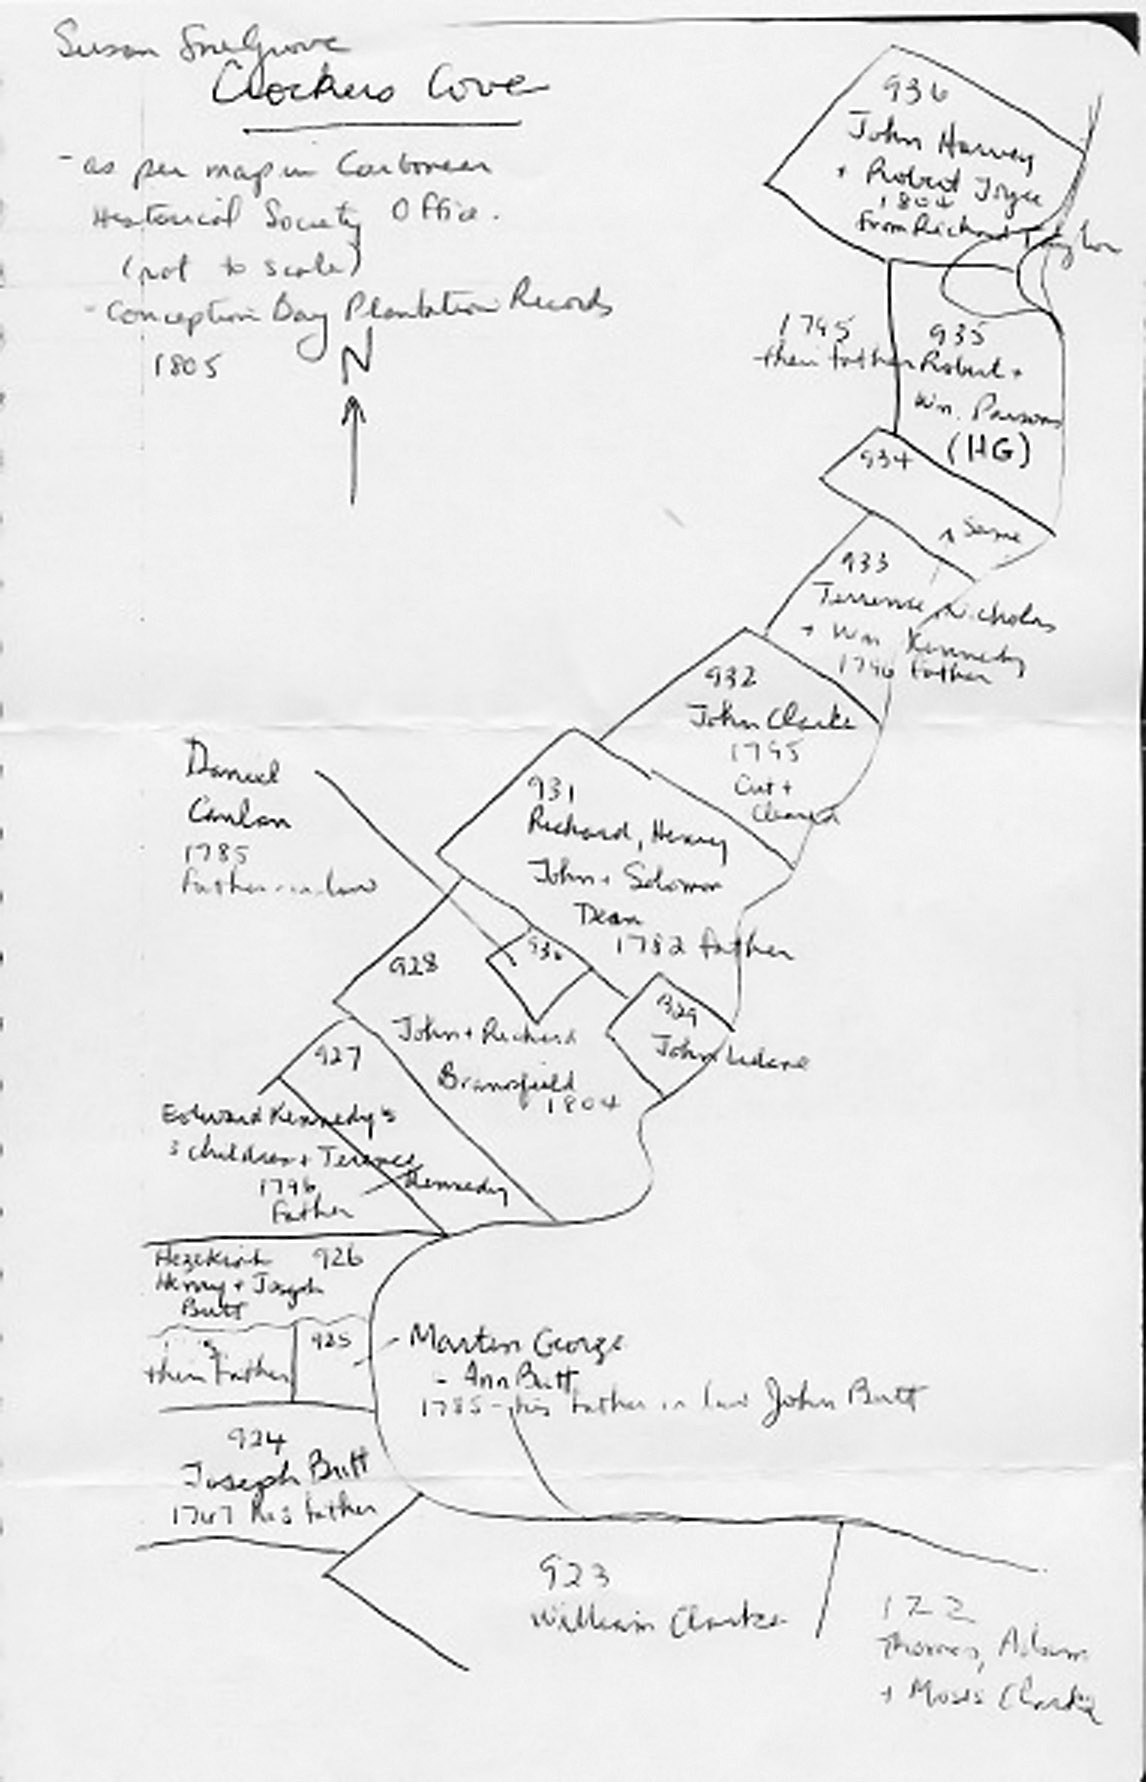 Susan Snelgrove
Crockers Cove
- as per map in Carbonear
Historical Society Office.
(not to scale)
- Conception Bay Plantation Records
1805
N
936
John Harvey
+ Robert Joyce
1804
From Richard Taylor
1795
935
their father Robert +
Wm. Parsons
(HG)
934
Same
933
Terrence, Nicholas
+ Wm Kennedy
1796 father
932
John Clarke
1795
Cut +
Cleared
Daniel
Canlan
1785
father-in-law
931
Richard, Henry
John + Solomon
Dean
1782 father
930
928
John + Richard
Bransfield
1804
929
John
927
Edward Kennedy's
3 children + Terence
Kennedy
1796
Father
Hezekiah 926
Henry + Joseph
Butt
their Father
925
Martin George
- Ann Butt
1785 - his father in law John Butt
924
Joseph Butt
1767 his father
923
William Clarke
122
Thomas, Adam
+ Moses Clarke